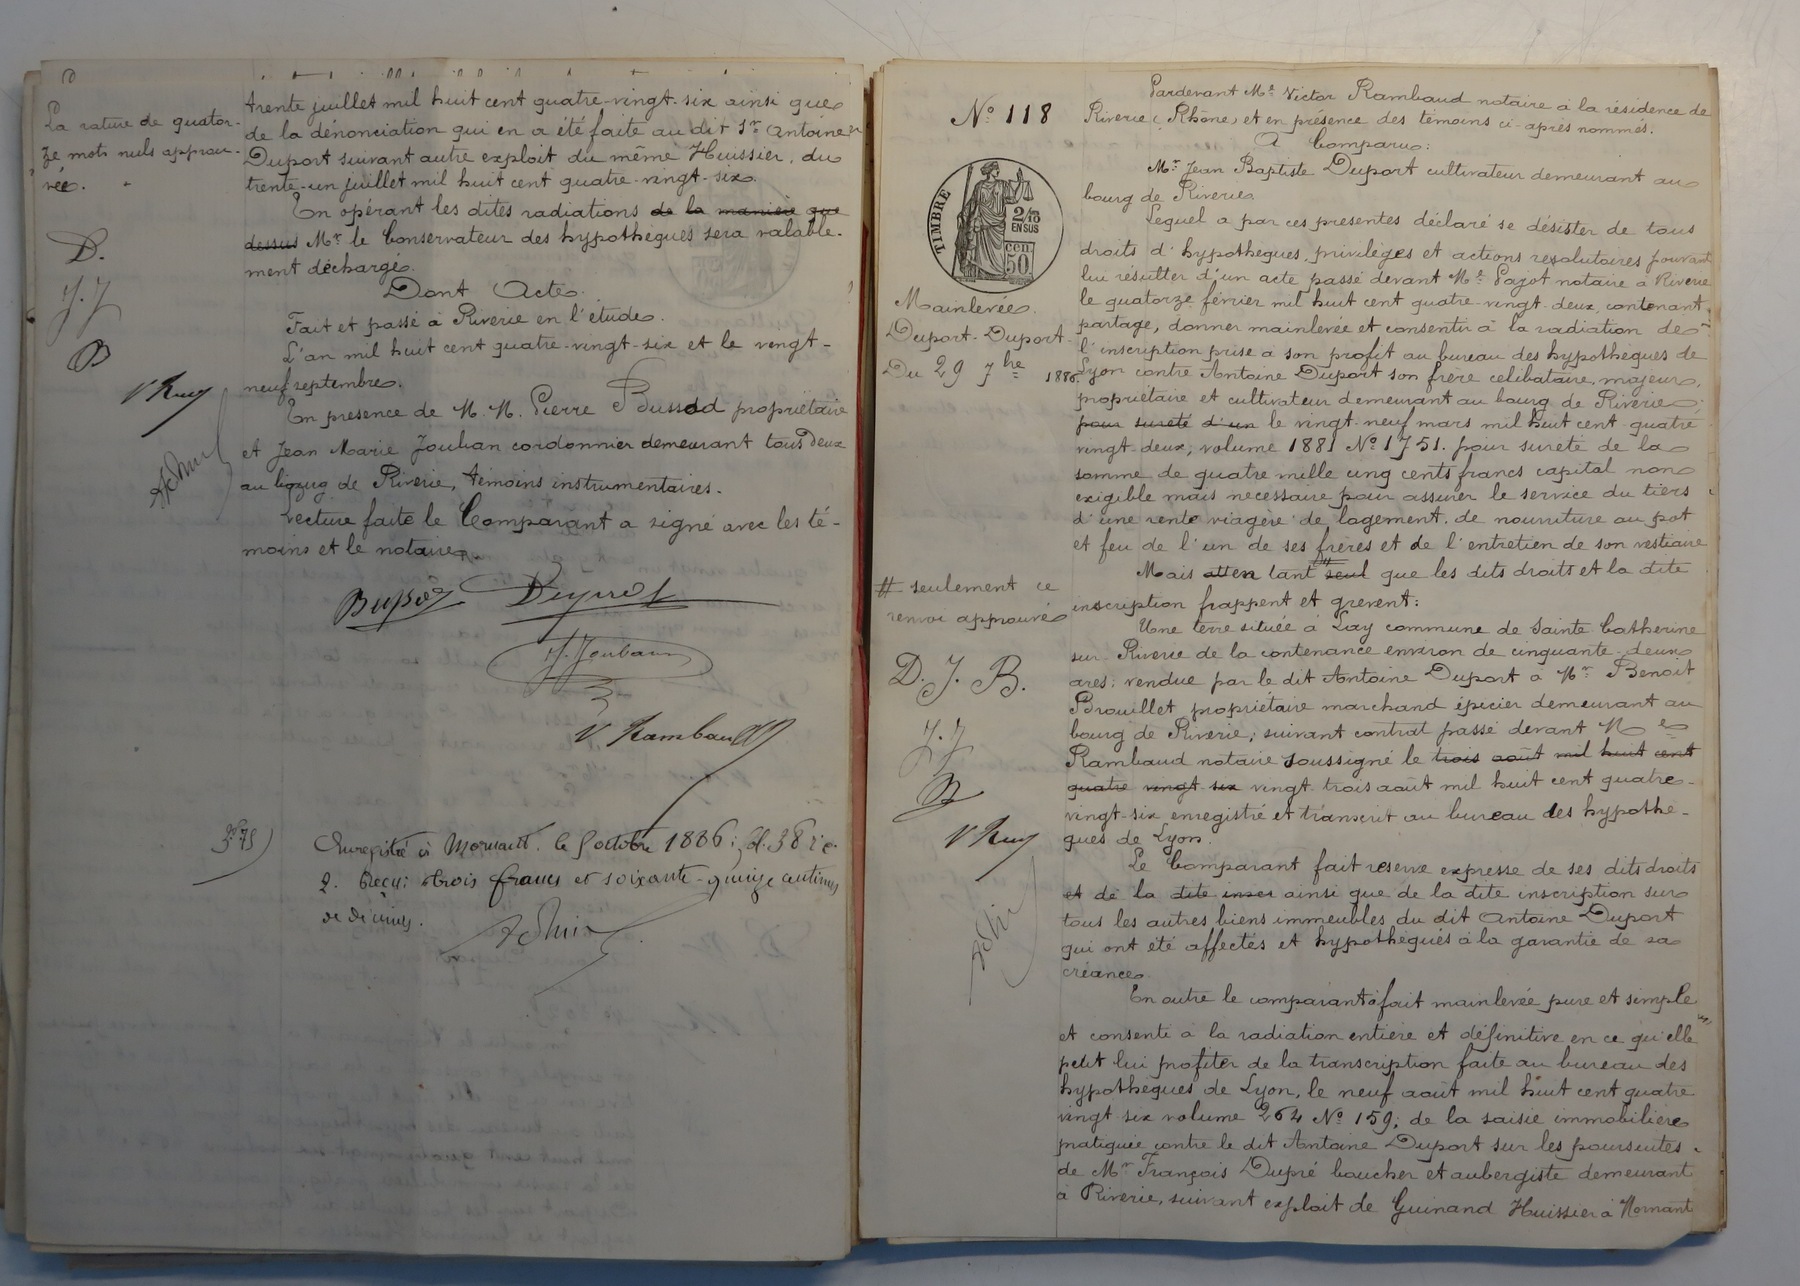 La rature de quator-
ze mots nuls approu-
vée.
D.
J. J
B
V Ram
trente juillet mil huit cent quatre-vingt-six ainsi que
de la dénonciation qui en a été faite au dit Sr Antoine
Duport suivant autre exploit du même Huissier, du
trente-un juillet mil huit cent quatre-vingt-six.
En opérant les dites radiations de la manière que
dessus Mr le Conservateur des hypothèques sera valable-
ment déchargé.
Dont Acte.
Fait et passé à Riverie en l'étude.
L'an mil huit cent quatre-vingt-six et le vingt-
neuf septembre.
En présence de M. M. Pierre Bussod propriétaire
et Jean Marie Jouban cordonnier demeurant tous deux
au bourg de Riverie, témoins instrumentaires.
Lecture faite le Comparant a signé avec les té-
moins et le notaire.
Duport
J. Jouban
V. Rambaud
Enregistré à Mornant. le 5 octobre 1886; fl. 38 r. c.
2. Reçu: trois francs et soixante-quinze centimes
de décimes.
N° 118
TIMBRE
2/10
EN SUS
cen.
50
Mainlevée
Duport-Duport
Du 29 7bre 1886.
# seulement ce
renvoi approuvé
D. J. B.
J. J
B
V Ram
Pardevant Me Victor Rambaud notaire à la résidence de
Riverie (Rhône) et en présence des témoins ci-après nommés.
A Comparu:
Mr Jean Baptiste Duport cultivateur demeurant au
bourg de Riverie.
Lequel a par ces presentes déclaré se désister de tous
droits d'hypothèques, privilèges et actions resolutoires pouvant
lui résulter d'un acte passé devant Me Pajot notaire à Riverie
le quatorze février mil huit cent quatre-vingt-deux, contenant
partage, donner mainlevée et consentir à la radiation de
l'inscription prise à son profit au bureau des hypothèques de
Lyon contre Antoine Duport son frère célibataire, majeur,
propriétaire et cultivateur demeurant au bourg de Riverie
pour sureté d'un le vingt-neuf mars mil huit cent-quatre
vingt-deux; volume 1881 N° 1751. pour sureté de la
somme de quatre mille cinq cents francs capital non
exigible mais necessaire pour assurer le service du tiers
d'une rente viagère de logement, de nourriture au pot
et feu de l'un de ses frères et de l'entretien de son vestiaire
Mais en tant # seul que les dits droits et la dite
inscription frappent et grèvent:
Une terre située à Lay commune de Sainte Catherine
sur Riverie de la contenance environ de cinquante-deux
ares; vendue par le dit Antoine Duport à Mr Benoit
Brouillet propriétaire marchand épicier demeurant au
bourg de Riverie; suivant contrat passé devant Me
Rambaud notaire soussigné le trois août mil huit cent
quatre vingt-six vingt-trois août mil huit cent quatre-
vingt-six enregistré et transcrit au bureau des hypothè-
ques de Lyon.
Le Comparant fait reserve expresse de ses dits droits
et de la dite inscr ainsi que de la dite inscription sur
tous les autres biens immeubles du dit Antoine Duport
qui ont été affectés et hypothéqués à la garantie de sa
créance.
En outre le comparant fait mainlevée pure et simple
et consent à la radiation entière et définitive en ce qu'elle
peut lui profiter de la transcription faite au bureau des
hypothèques de Lyon, le neuf août mil huit cent quatre
vingt six volume 264 N° 159; de la saisie immobilière
pratiquée contre le dit Antoine Duport sur les poursuites
de Mr François Dupré boucher et aubergiste demeurant
à Riverie, suivant exploit de Guinand Huissier à Mornant